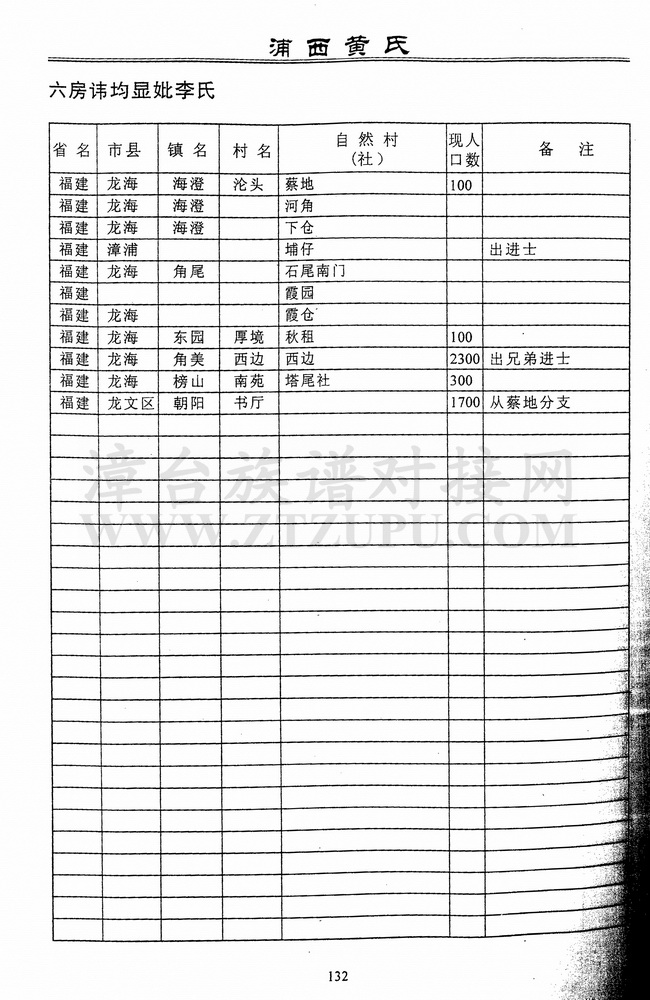 浦西黄氏
六房讳均显妣李氏
省名 市县 镇名 村名 自然村(社) 现人口数 备注
福建 龙海 海澄 沧头 蔡地 100
福建 龙海 海澄 河角
福建 龙海 海澄 下仓
福建 漳浦 埔仔 出进士
福建 龙海 角尾 石尾南门
福建 霞园
福建 龙海 霞仓
福建 龙海 东园 厚境 秋租 100
福建 龙海 角美 西边 西边 2300 出兄弟进士
福建 龙海 榜山 南苑 塔尾社 300
福建 龙文区 朝阳 书厅 1700 从蔡地分支
漳台族谱对接网
WWW.ZTZUPU.COM
132